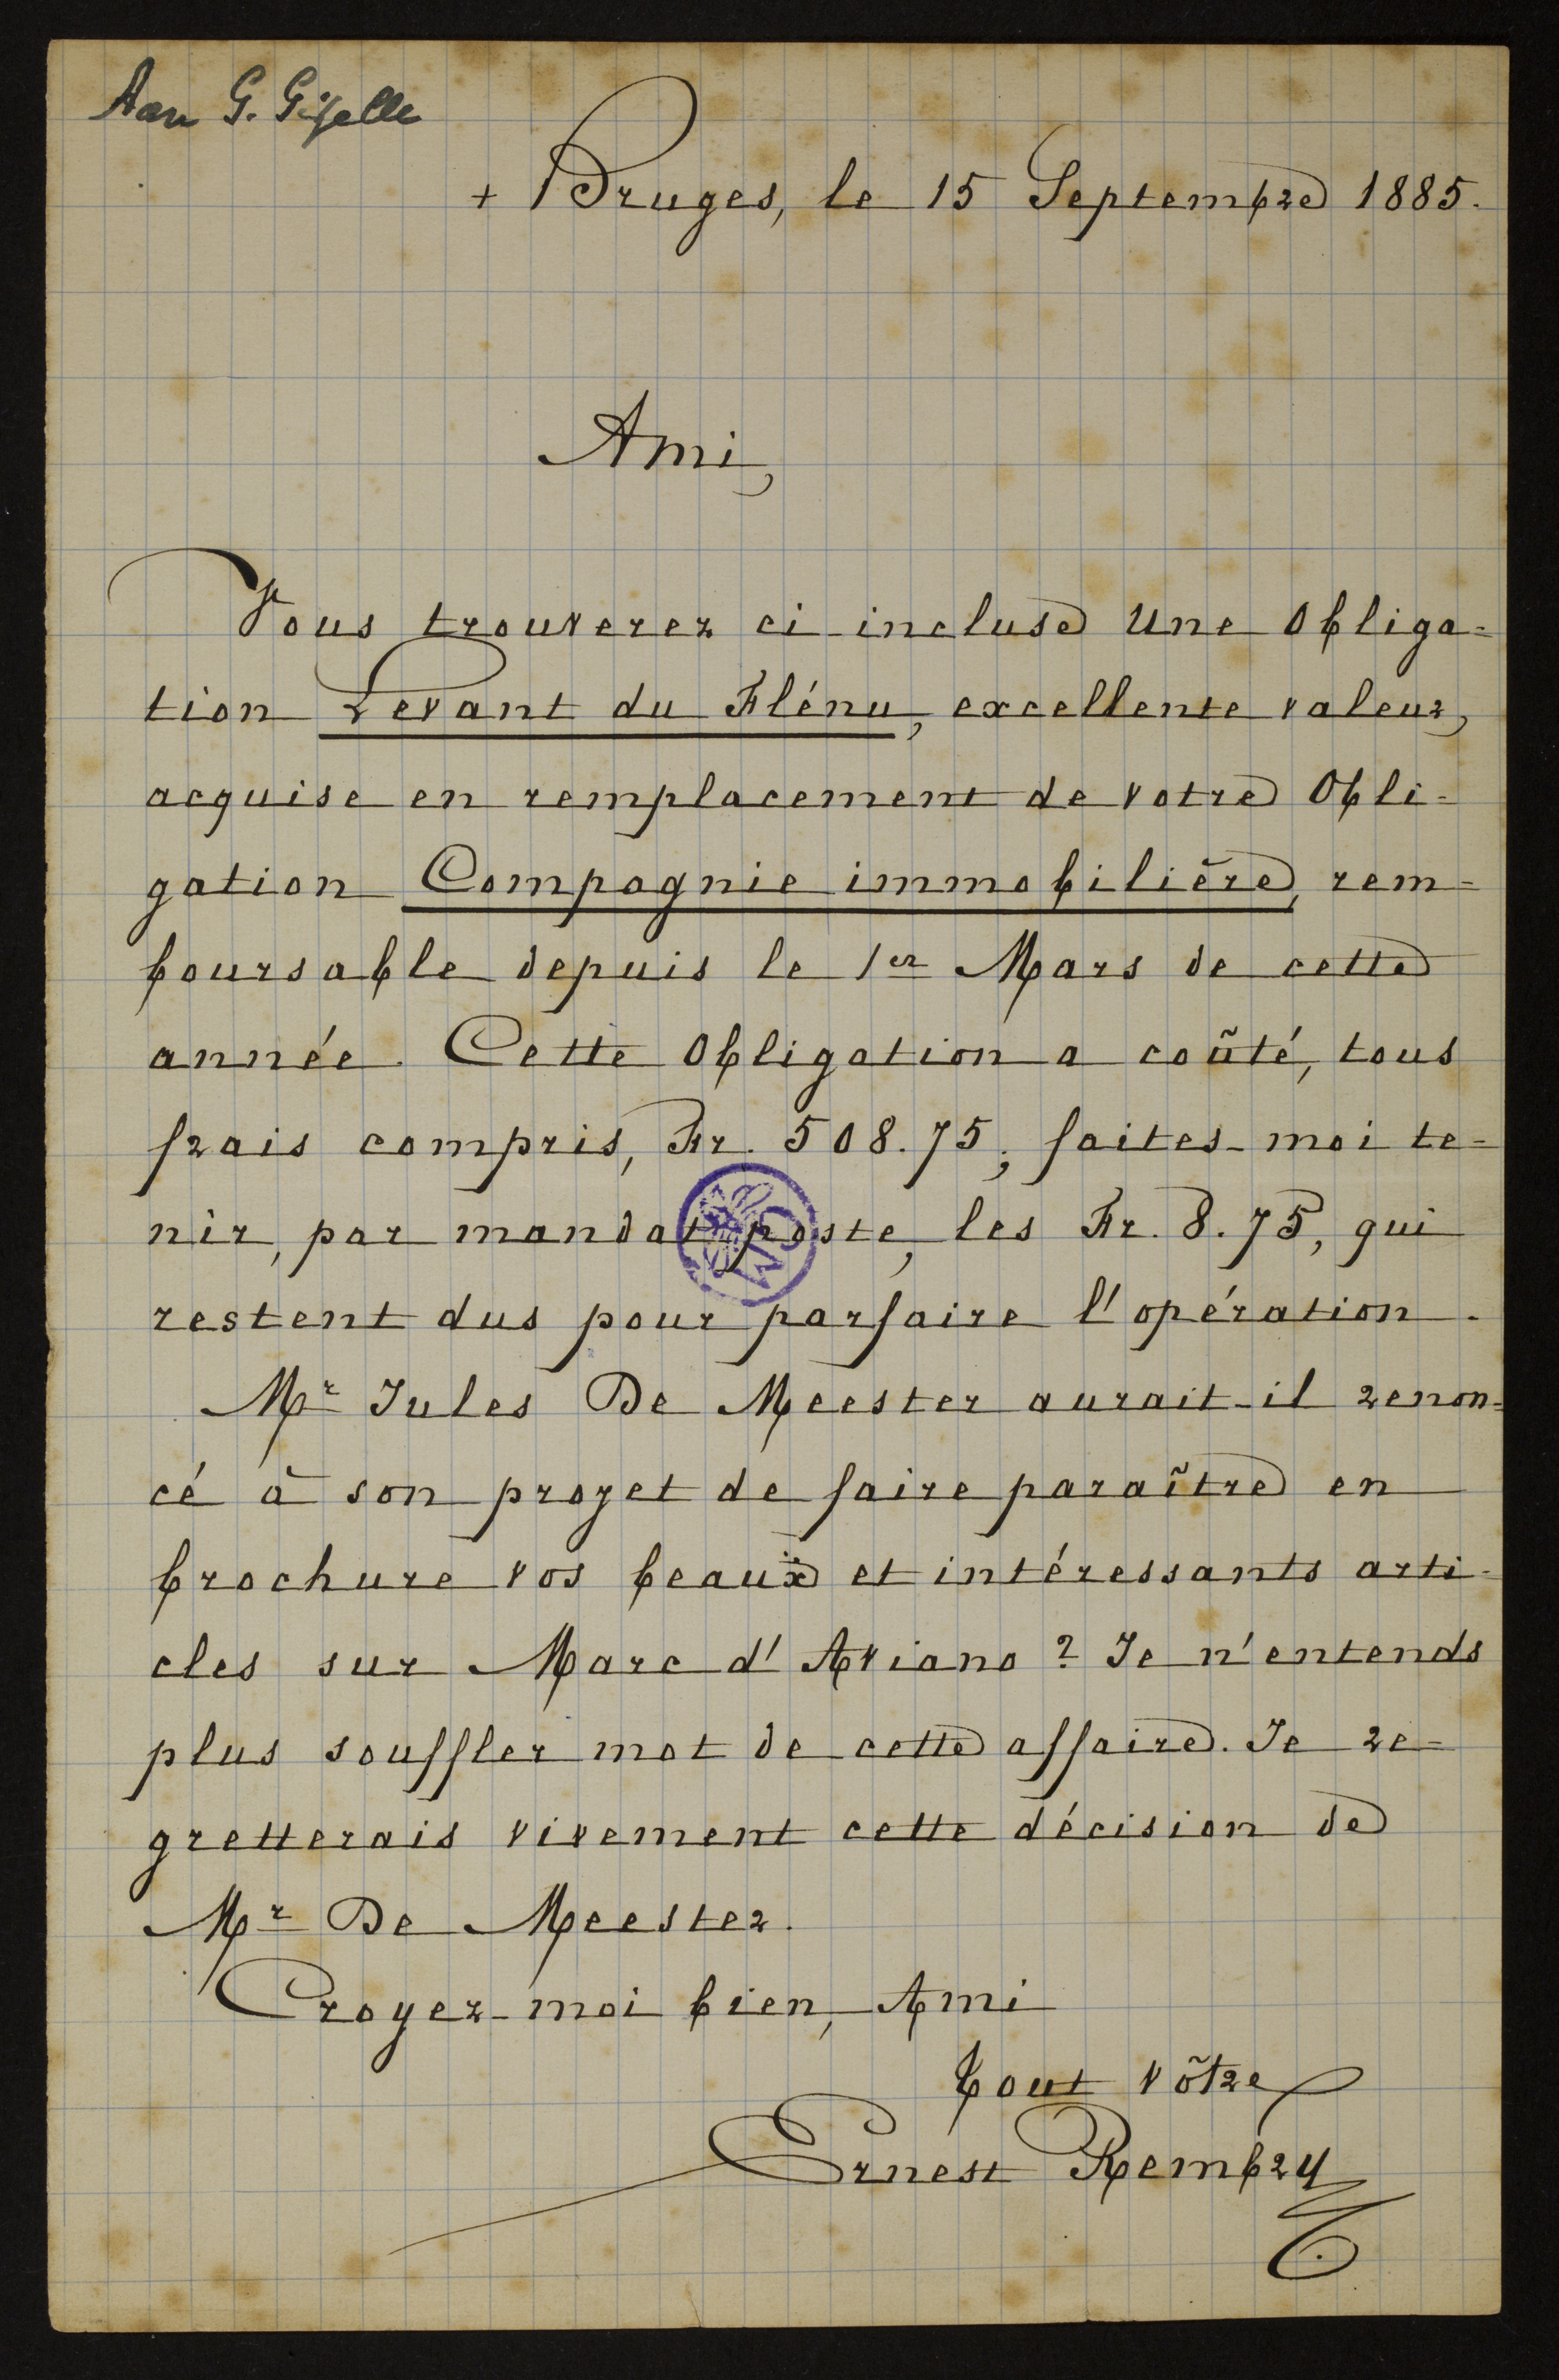 Aan G. Gezelle
+ Bruges, le 15 Septembre 1885.
Ami,
Vous trouverez ci-incluse une Obliga=
tion Levant du Flénu, excellente valeur,
acquise en remplacement de votre Obli-
gation Compagnie immobilière, rem=
boursable depuis le 1er Mars de cette
année. Cette Obligation a coûté, tous
frais compris, Fr. 508.75; faites-moi te=
nir, par mandat poste, les Fr. 8.75, qui
restent dus pour parfaire l'opération.
Mr Jules De Meester aurait-il renon=
cé à son projet de faire paraître en
brochure vos beaux et intéressants arti-
cles sur Marc d'Aviano? Je n'entends
plus souffler mot de cette affaire. Je re=
gretterais vivement cette décision de
Mr De Meester.
Croyez-moi bien, Ami
Tout vôtre
Ernest Rembry